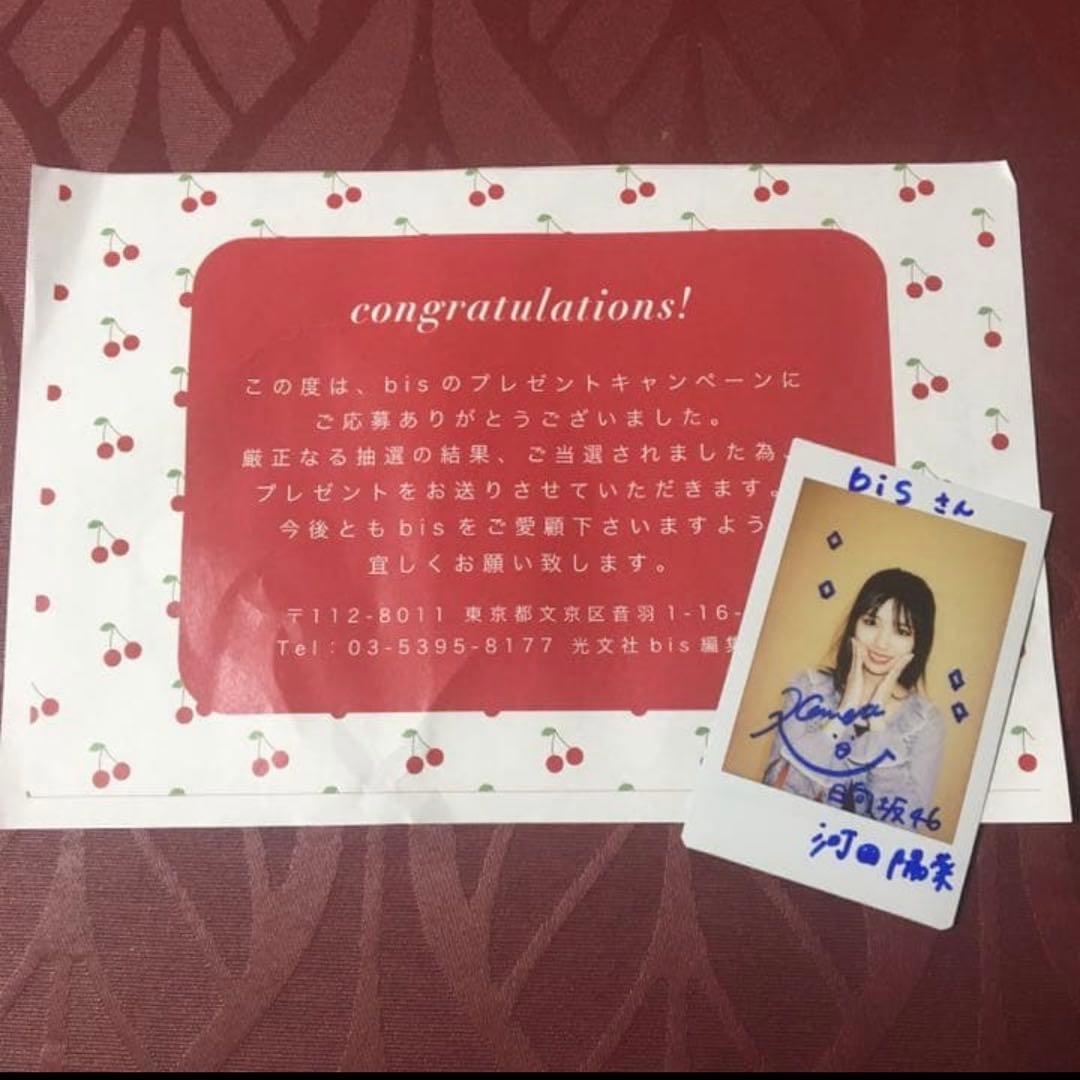 congratulations!
この度は、bisのプレゼントキャンペーンに
ご応募ありがとうございました。
厳正なる抽選の結果、ご当選されました為、
プレゼントをお送りさせていただきます。
今後ともbisをご愛顧下さいますよう
宜しくお願い致します。
〒112-8011 東京都文京区音羽1-16-
Tel：03-5395-8177 光文社bis編集
bisさん
日向坂46
河田陽菜